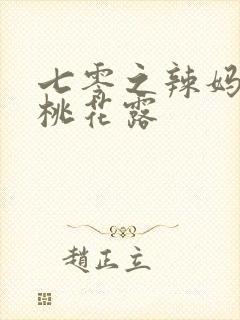 七零之辣妈
桃花露
趙正立